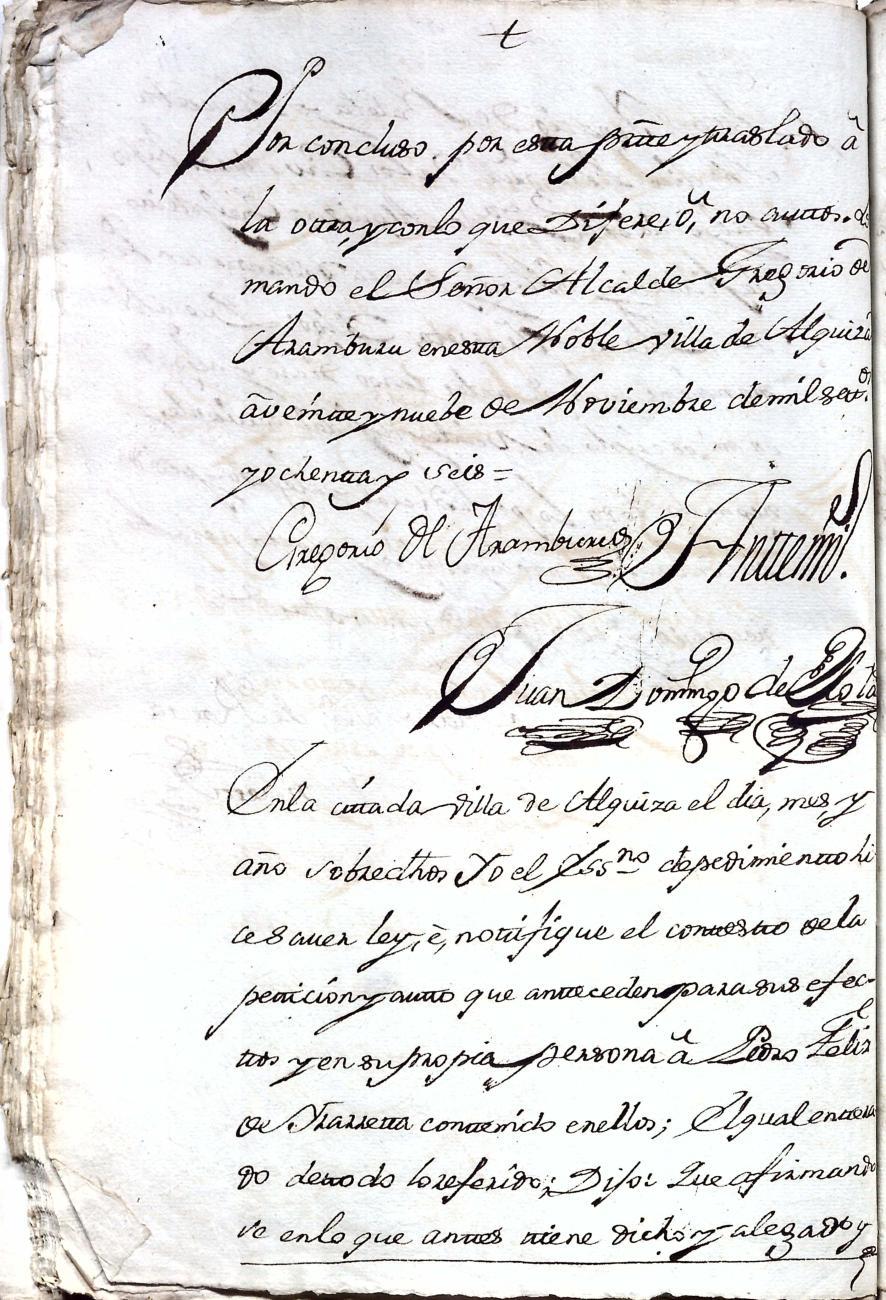 +
Por concluso por esta pãrte y traslado â
la ottra, y con lo que Difere, ô, no auttos. lo
mando el Señor Alcalde Gregorio de
Aramburu enesta Noble villa de Alquiza
â veintte y nuebe de Noviembre demil settos
y ochentta y seis=
Gregorio de Aramburu Anttemi
Juan Domingo de
Enla cittada villa de Alquiza el dia, mes, y
año sobredhos Yo el Essno depedimientto hi
ce saver ley, ê, nottifique el conttestto dela
petticion y autto que antteceden para sus efec-
ttos y en su propia persona â Pedro Felix
de Yrarretta conttenido enellos; El qual enttera
do dettodo lo referido; Dijo: Que afirmando
se enlo que anttes ttiene dicho y alegado y